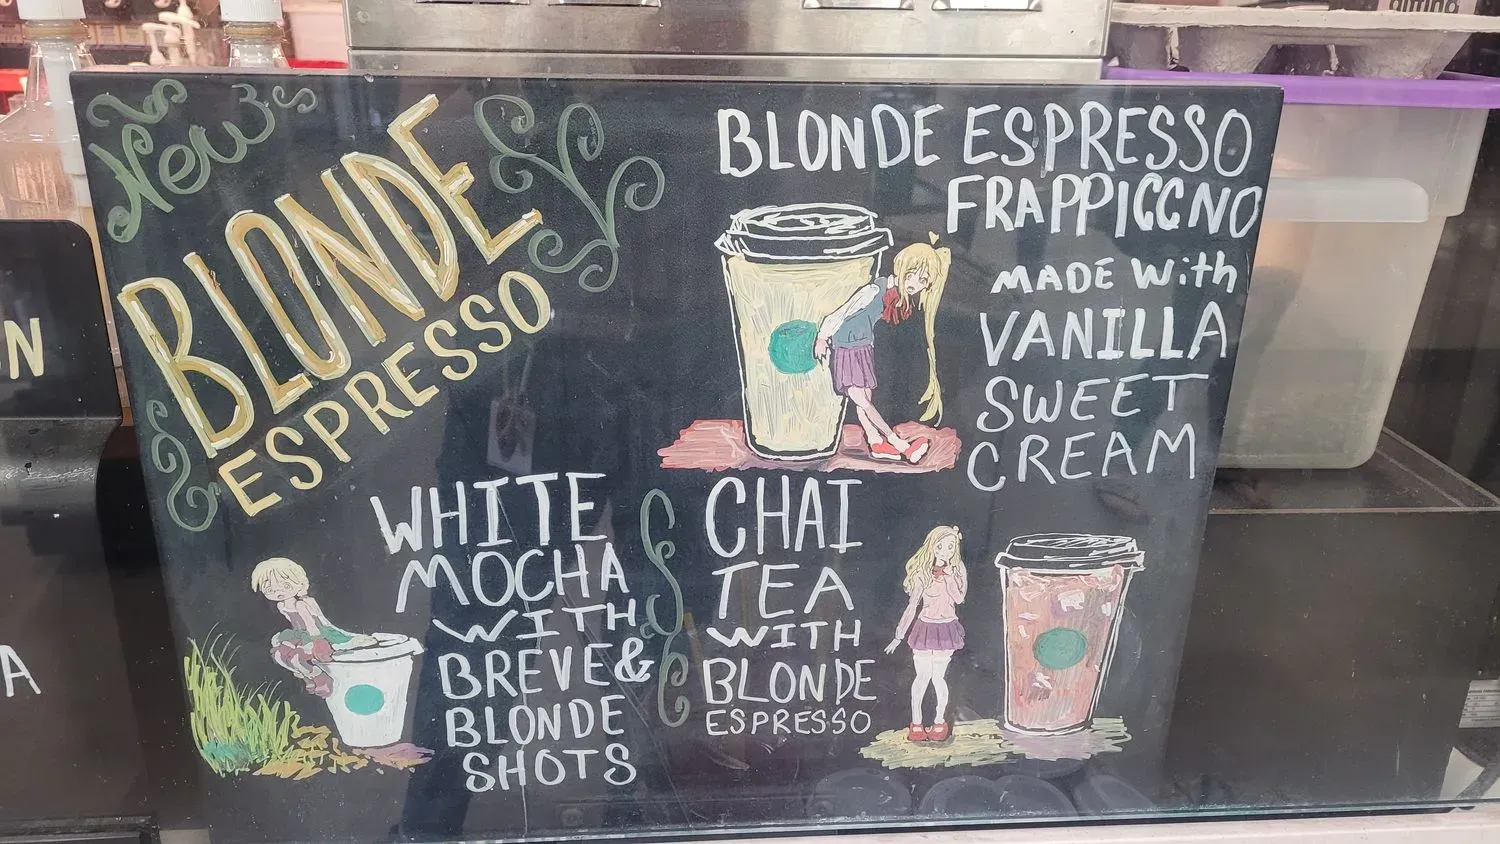 New
BLONDE
ESPRESSO
BLONDE ESPRESSO
FRAPPICCNO
MADE With
VANILLA
SWEET
CREAM
WHITE
MOCHA
WITH
BREVE &
BLONDE
SHOTS
CHAI
TEA
WITH
BLONDE
ESPRESSO
N
A